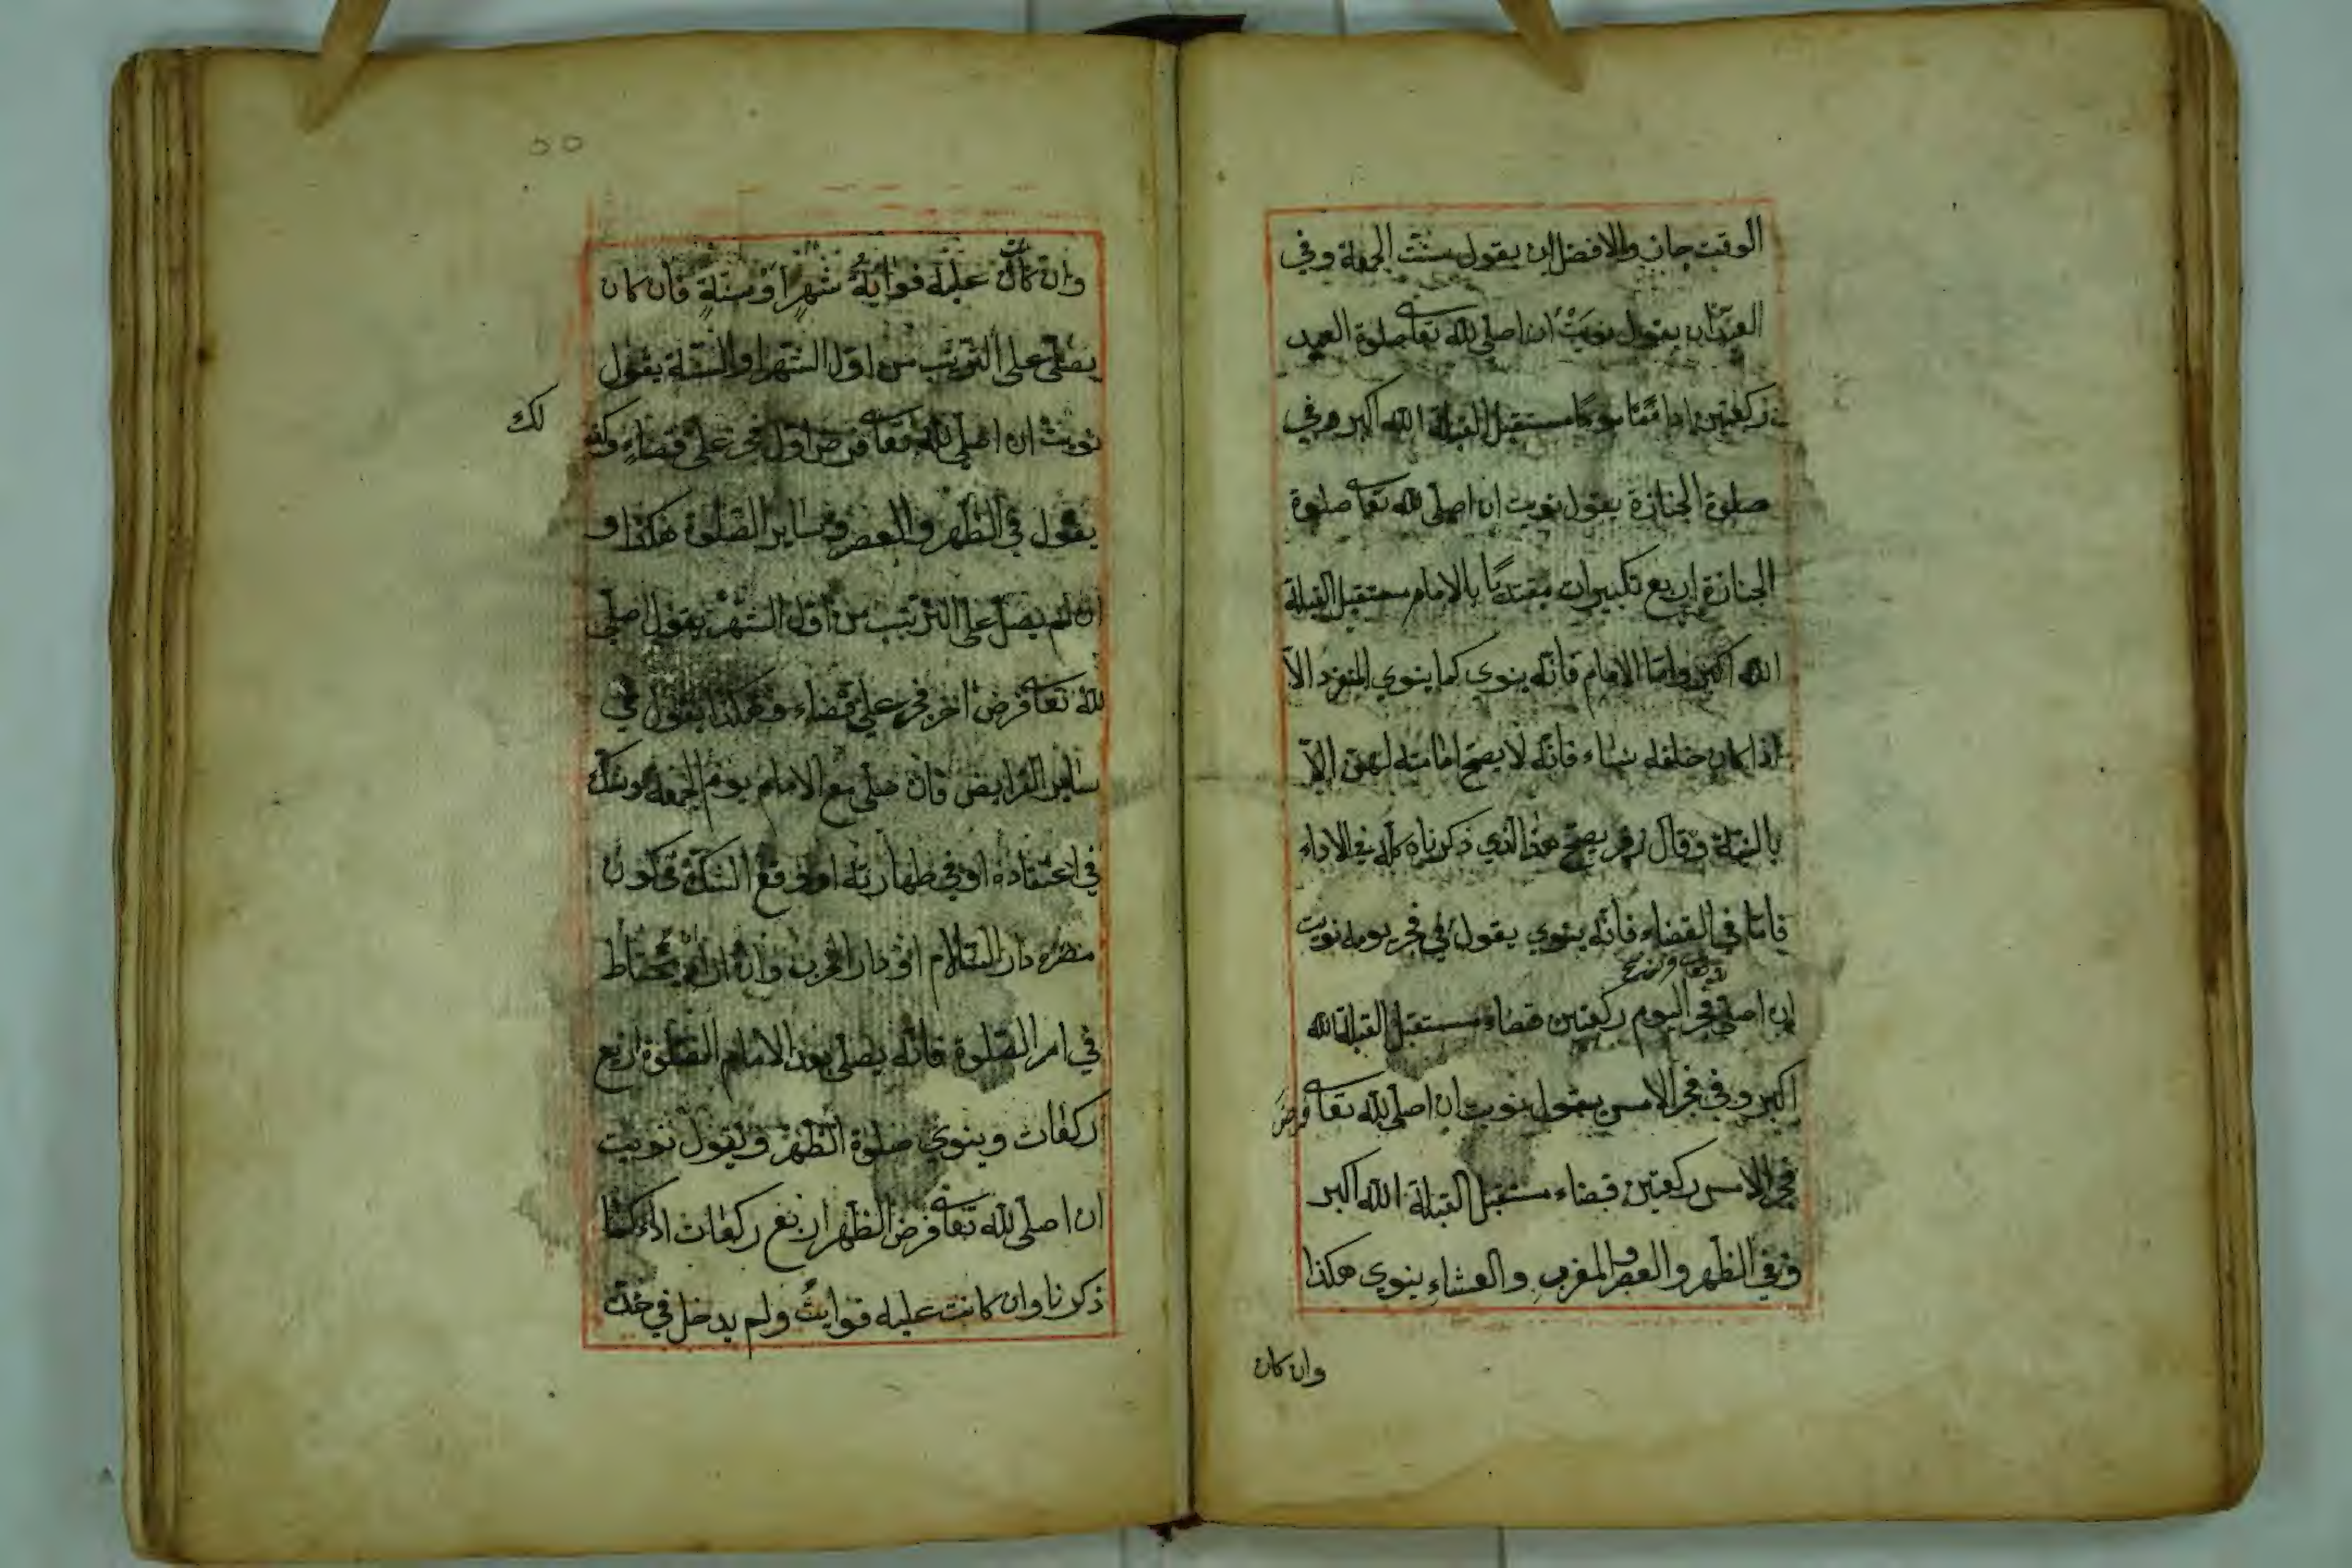 الوقت جاز والافضل ان يقول سنت الجمعة وفي
العيد ان يقول نويت ان اصلي لله تعا صلوة العيد
ركعتين اداء مقتديا مستقبل القبلة الله اكبر وفي
صلوة الجنازة يقول نويت ان اصلي لله تعا صلوة
الجنازة اربع تكبيرات مقتديا بالامام مستقبل القبلة
الله اكبر واما الامام فانه ينوي كما ينوي المنفرد الا
اذا كان خلفه نساء فانه لا يصح امامته لهن الا
بالنية وقال زفر يصح هذا الذي ذكرناه كله في الاداء
فاما في القضاء فانه ينوي يقول في فجر يومه نويت
لله تعا فرض
ان اصلي فجر اليوم ركعتين قضاء مستقبل القبلة الله
اكبر وفي فجر الامس يقول نويت ان اصلي لله تعا فرض
فجر الامس ركعتين قضاء مستقبل القبلة الله اكبر
وفي الظهر والعصر والمغرب والعشاء ينوي هكذا
وان كان
٥٥
وان كان عليه فوايت شهر او سنة فان كان
يصلي على الترتيب من اول الشهر او السنة يقول
نويت ان اصلي لله تعا فرض اول فجر علي قضاء وكذ
لك
يقول في الظهر والعصر وساير الصلوة هكذا و
ان لم يصل على الترتيب من اول الشهر يقول اصلي
لله تعا فرض اخر فجر علي قضاء وهكذا يقول في
ساير الفرايض فان صلى مع الامام يوم الجمعة وشك
في اعتقاده او في طهارته او وقع الشك في كون
مصره دار السلام او دار الحرب وان اراد يحتاط
في امر الصلوة فانه يصلي بعد الامام الصلوة اربع
ركعات وينوي صلوة الظهر ويقول نويت
ان اصلي لله تعا فرض الظهر اربع ركعات اداء كما
ذكرنا وان كانت عليه فوايت ولم يدخل في حد